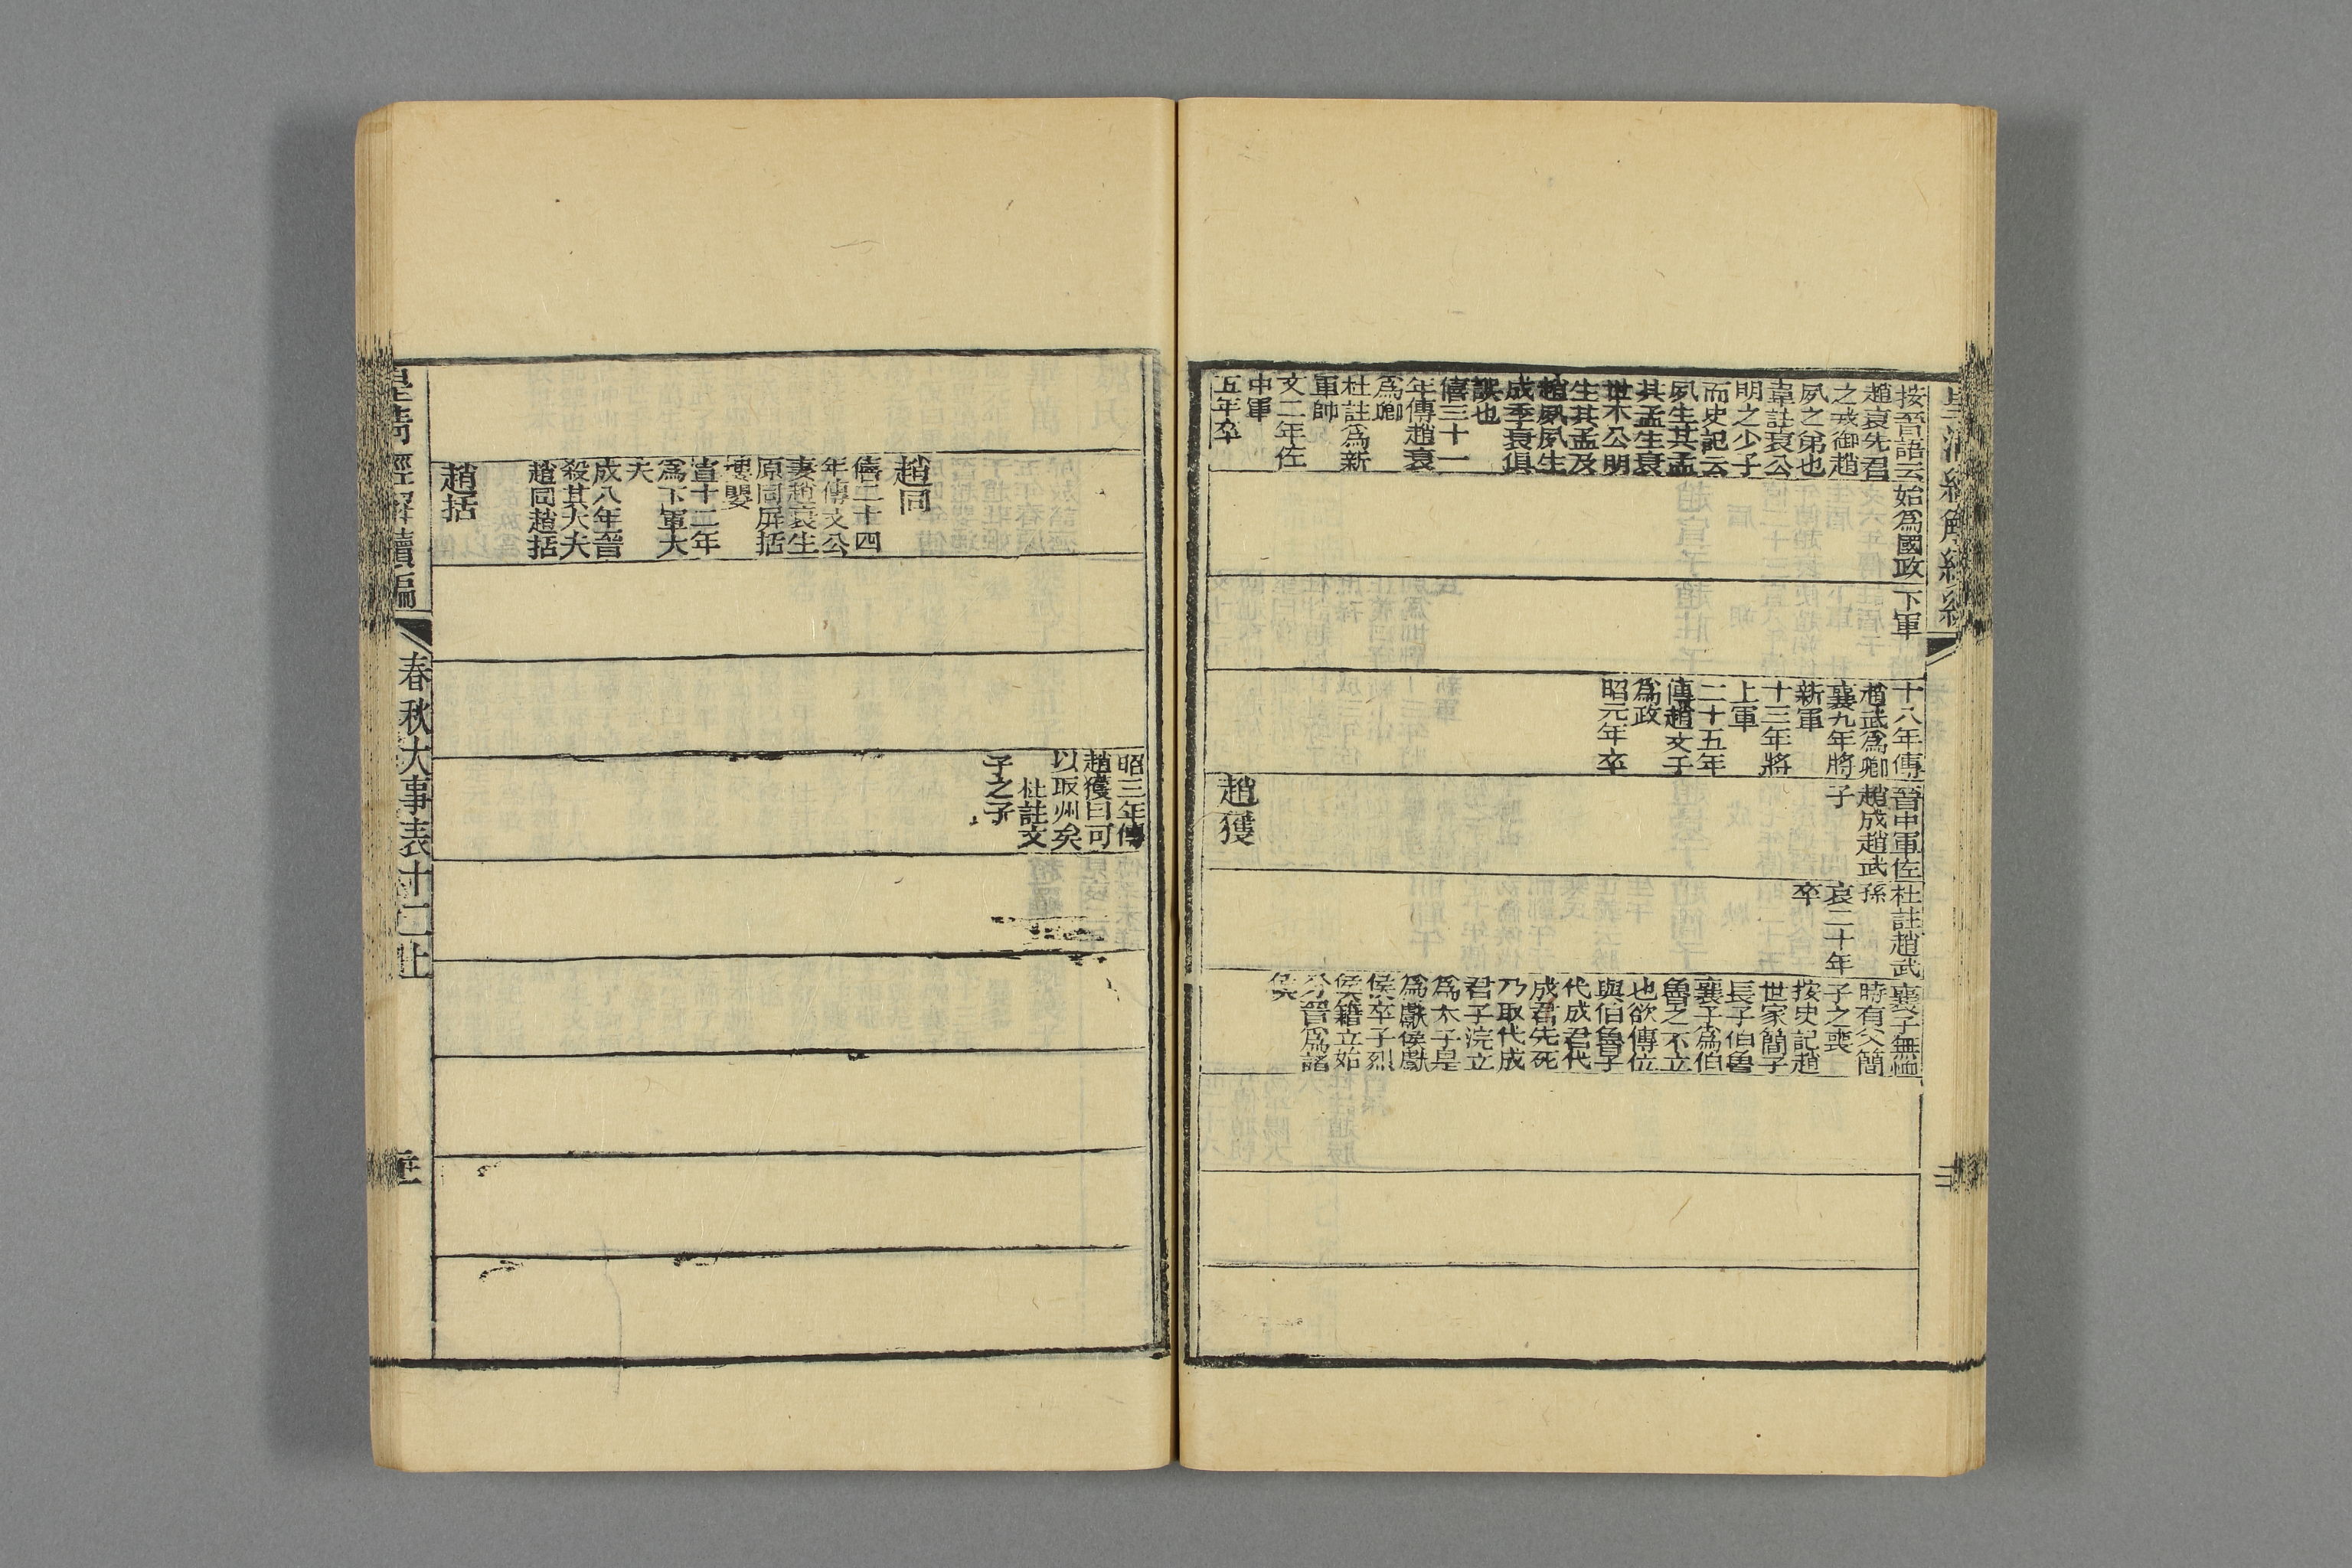 按晉語云
趙衰先君
之戎御趙
夙之弟也
韋註衰公
明之少子
而史記云
夙生其孟
其孟生衰
世本公明
生其孟及
趙夙夙生
成季衰俱
誤也
僖三十一
年傳趙衰
為卿
杜註為新
軍帥
文二年佐
中軍
五年卒
始為國政
下軍
十八年傳
趙武為卿
襄九年將
新軍
十三年將
上軍
二十五年
傳趙文子
為政
昭元年卒
晉中軍佐
趙成趙武
子
趙獲
杜註趙武
孫
哀二十年
卒
襄子無恤
時有父簡
子之喪
按史記趙
世家簡子
長子伯魯
襄子為伯
魯之不立
也欲傳位
與伯魯子
代成君代
成君先死
乃取代成
君子浣立
為太子是
為獻侯獻
侯卒子烈
侯籍立始
分晉為諸
侯
昭三年傳
趙獲曰可
以取州矣
杜註文
子之子
趙同
僖二十四
年傳文公
妻趙衰生
原同屏括
樓嬰
宣十二年
為下軍大
夫
成八年晉
殺其大夫
趙同趙括
趙括
皇清經解續編
春秋大事表十二上